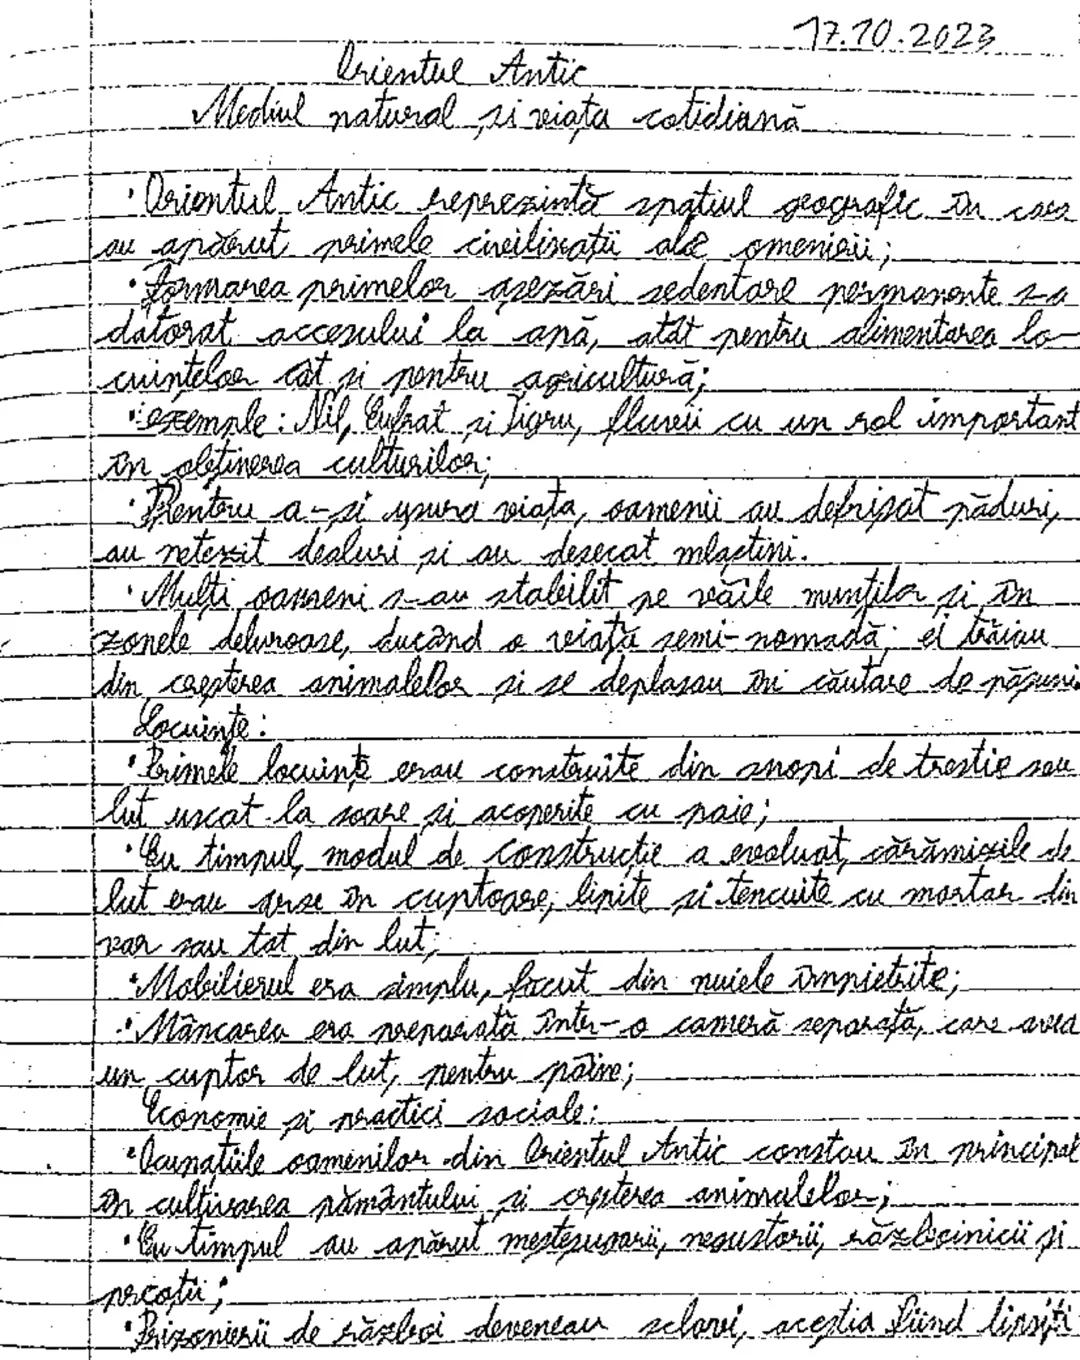 17.10.2023
Orientul Antic
Mediul natural și viața cotidiană
• Orientul Antic reprezintă spațiul geografic în care
au apărut primele civilizații ale omenirii;
• Formarea primelor așezări sedentare permanente s-a
datorat accesului la apă, atât pentru alimentarea lo-
cuințelor cât și pentru agricultură;
• exemple: Nil, Eufrat și Tigru, fluvii cu un rol important
în obținerea culturilor;
• Pentru a-și ușura viața, oamenii au defrișat păduri,
au netezit dealuri și au desecat mlaștini.
• Mulți oameni s-au stabilit pe văile munților și în
zonele deluroase, ducând o viață semi-nomadă; ei trăiau
din creșterea animalelor și se deplasau în căutare de pășuni.
Locuințe:
• Primele locuințe erau construite din snopi de trestie sau
lut uscat la soare și acoperite cu paie;
• Cu timpul, modul de construcție a evoluat, cărămizile de
lut erau arse în cuptoare, lipite și tencuite cu mortar din
var sau tot din lut;
• Mobilierul era simplu, făcut din nuiele împletite;
• Mâncarea era preparată într-o cameră separată, care avea
un cuptor de lut, pentru pâine;
Economie și practici sociale:
• Ocupațiile oamenilor din Orientul Antic constau în principal
în cultivarea pământului și creșterea animalelor;
• Cu timpul au apărut meșteșugarii, negustorii, războinicii și
preoții;
• Prizonierii de război deveneau sclavi, aceștia fiind lipsiți